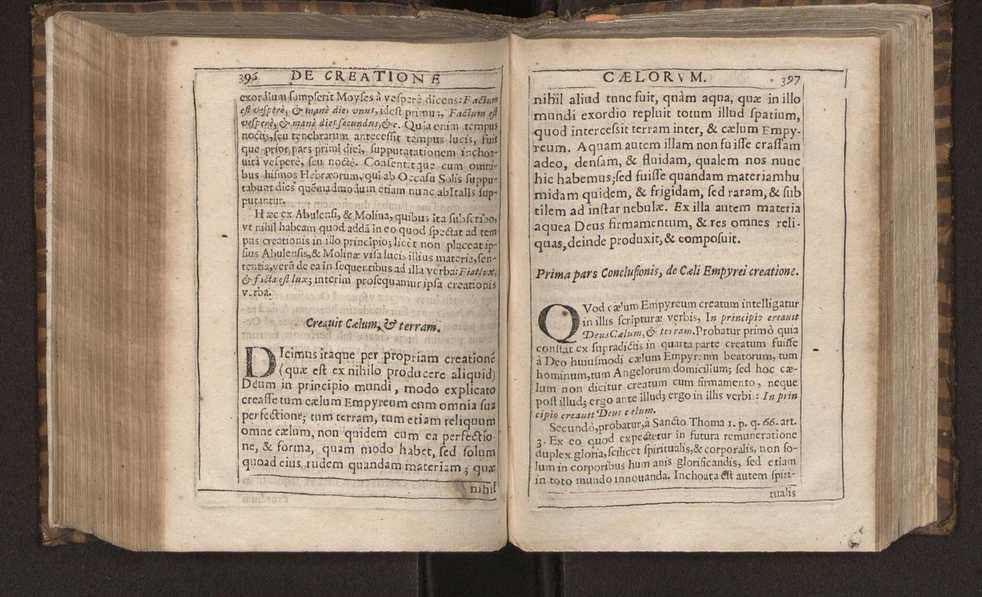 396 DE CREATIONE
exordium sumpserit Moyses à vesperè dicens: Factum
est vesperè, & manè dies vnus, idest primus, Factum est
vesperè, & manè dies secundus, &c. Quia enim tempus
noctis, seu tenebrarum antecessit tempus lucis, fuit
que prior pars primi diei, supputationem inchoa-
uit à vesperè, seu noctè. Consentitque cum omni-
bus hismos Hebræorum, qui ab Occasu Solis suppu-
tabunt dies quēmadmodum etiam nunc ab Italis sup-
putantur.
Hæc ex Abulensi, & Molina, quibus ita subscribo,
vt nihil habeam quod addā in eo quod spectat ad tem
pus creationis in illo principio; licèt non placeat ip-
sius Abulensis, & Molinæ visa lucis illius materia, sen-
tentia, verū de ea in sequentibus ad illa verba: Fiat lux,
& facta est lux; interim prosequamur ipsa creationis
verba.
Creauit Cælum, & terram.
DIcimus itaque per propriam creationē
(quæ est ex nihilo producere aliquid)
Deum in principio mundi, modo explicato
creasse tum cælum Empyreum cum omnia sua
perfectione; tum terram, tum etiam reliquum
omne cælum, non quidem cum ea perfectio-
ne, & forma, quam modo habet, sed solum
quoad eius rudem quandam materiam; quæ
nihil
CÆLORVM. 397
nihil aliud tunc fuit, quàm aqua, quæ in illo
mundi exordio repluit totum illud spatium,
quod intercessit terram inter, & cælum Empy-
reum. Aquam autem illam non fuisse crassam
adeo, densam, & fluidam, qualem nos nunc
hic habemus; sed fuisse quandam materiam hu
midam quidem, & frigidam, sed raram, & sub
tilem ad instar nebulæ. Ex illa autem materia
aquea Deus firmamentum, & res omnes reli-
quas, deinde produxit, & composuit.
Prima pars Conclusionis, de Cæli Empyrei creatione.
QVod cælum Empyreum creatum intelligatur
in illis scripturæ verbis, In principio creauit
Deus Cælum, & terram. Probatur primò quia
constat ex supradictis in quarta parte creatum fuisse
à Deo huiusmodi cælum Empyreum beatorum, tum
hominum, tum Angelorum domicilium; sed hoc cæ-
lum non dicitur creatum cum firmamento, neque
post illud; ergo ante illud; ergo in illis verbis: In prin
cipio creauit Deus cælum.
Secundò, probatur, à Sancto Thoma 1. p. q. 66. art.
3. Ex eo quod expectetur in futura remuneratione
duplex gloria, scilicet spiritualis, & corporalis, non so-
lum in corporibus humanis glorificandis, sed etiam
in toto mundo innouanda. Inchoata est autem spiri-
tualis